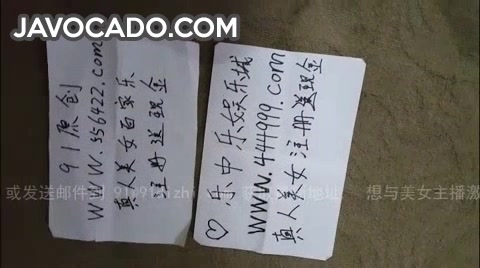 JAVOCADO.COM
91原创
www.356422.com
真人美女百家乐
注册送现金
♡乐中乐娱乐城
www.444999.com
真人美女注册送现金
或发送邮件到
地址
想与美女主播激